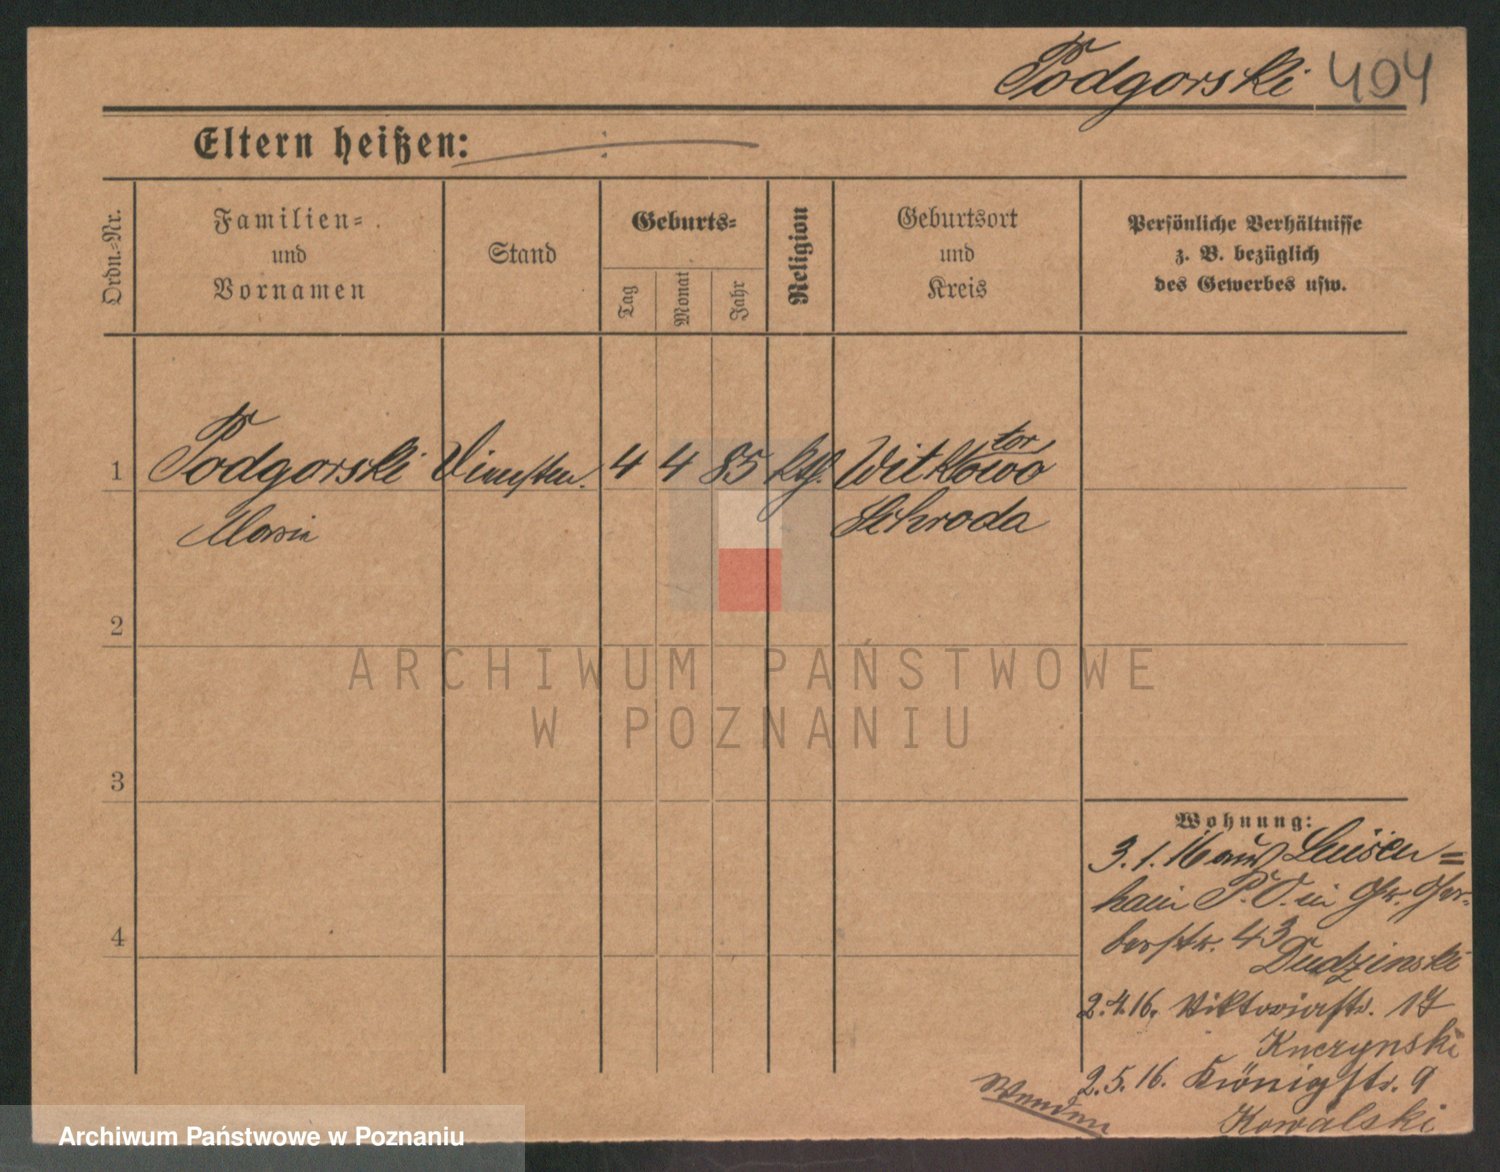 Podgorski 494
Eltern heißen:
Ordn.=Nr.
Familien=
und
Vornamen
Stand
Geburts=
Tag
Monat
Jahr
Religion
Geburtsort
und
Kreis
Persönliche Verhältnisse
z. B. bezüglich
des Gewerbes usw.
1 Podgorski 4 4 85 kth. Witkowo
Schroda
2
3
4
ARCHIWUM PAŃSTWOWE
W POZNANIU
Wohnung:
3.1.16 aus Luisen=
hain P. O. in Gr. Ger-
berstr. 43
Dudzinski
2.4.16. Viktoriastr. 17
Kuczynski
2.5.16. Königstr. 9
Kowalski
Wenden
Archiwum Państwowe w Poznaniu